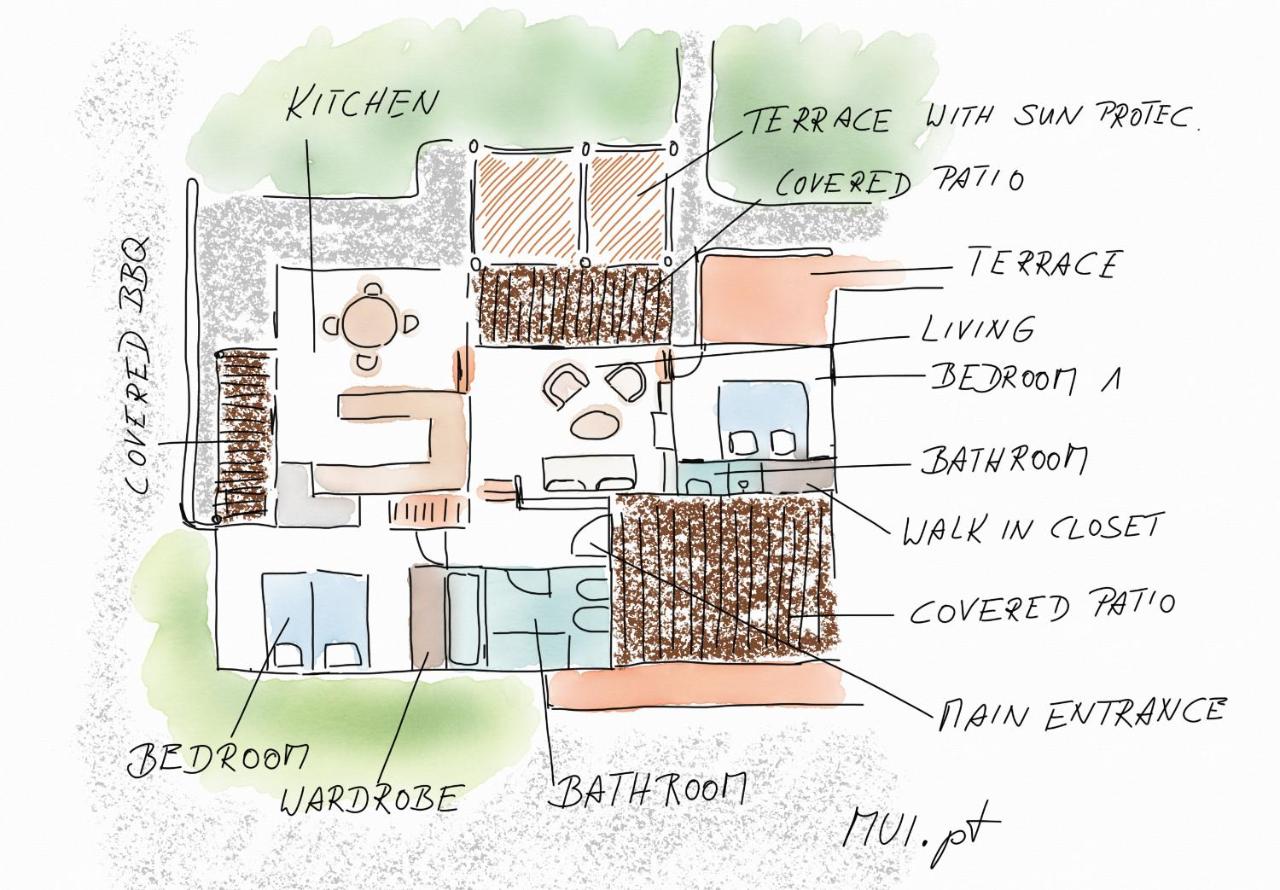 KITCHEN
TERRACE WITH SUN PROTEC.
COVERED PATIO
TERRACE
LIVING
BEDROOM 1
BATHROOM
WALK IN CLOSET
COVERED PATIO
MAIN ENTRANCE
COVERED BBQ
BEDROOM
WARDROBE
BATHROOM
MUI.pt